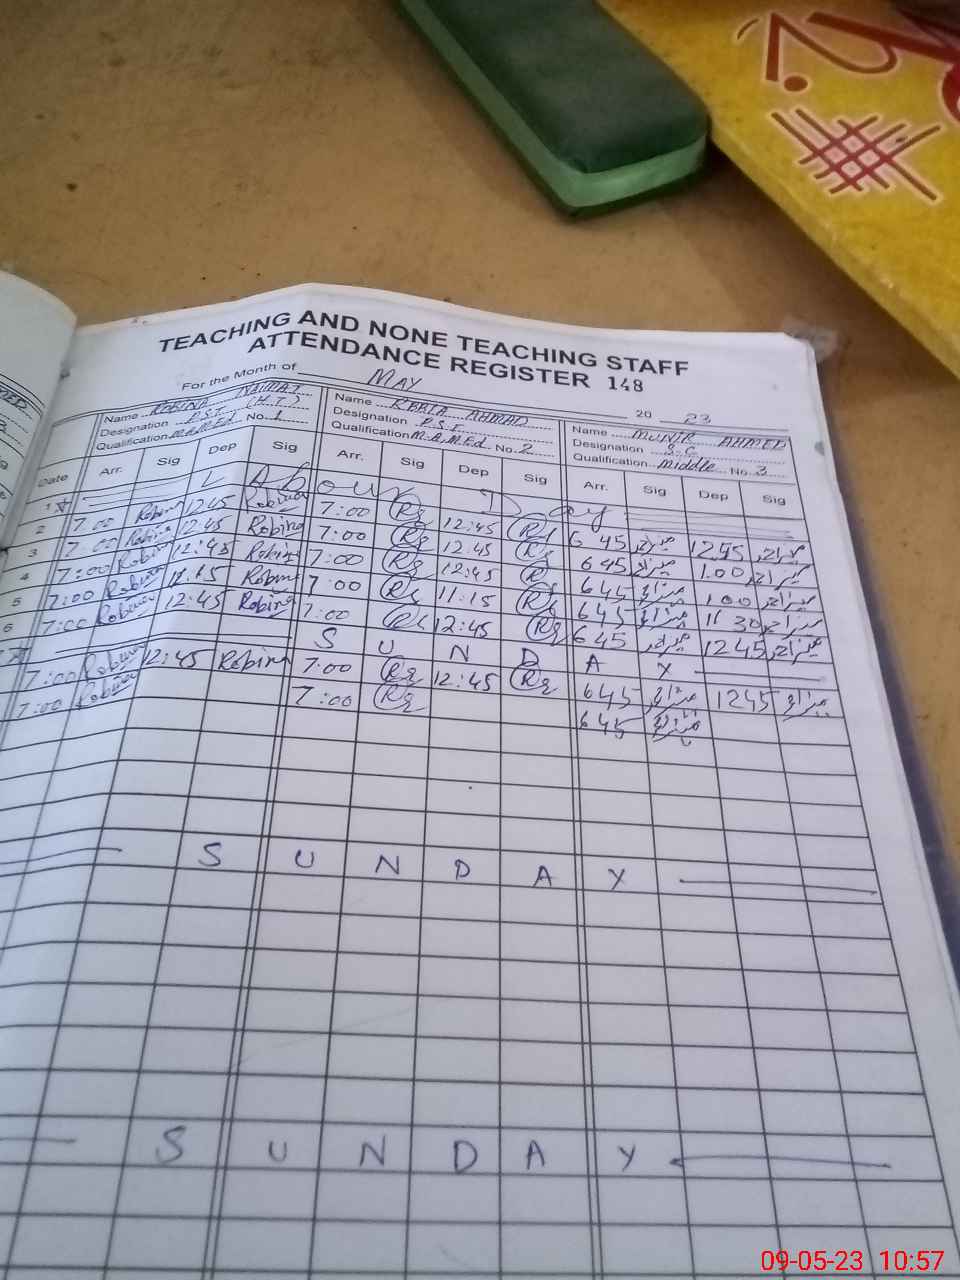 TEACHING AND NONE TEACHING STAFF
ATTENDANCE REGISTER 148
For the Month of MAY 20 23
Name ROBINA NAIMAT Name RABIA AHMAD Name MUNIR AHMED
Designation P.S.T (H.T) Designation P.S.T Designation S.C
Qualification M.A M.Ed No. 1 Qualification M.A M.Ed No. 2 Qualification Middle No. 3
Date Arr. Sig Dep Sig Arr. Sig Dep Sig Arr. Sig Dep Sig
1 L A b o u r D a y
2 7:00 Robina 12:45 Robina 7:00 12:45 6 45 12 45
3 7:00 Robina 12:45 Robina 7:00 12:45 6 45 1 00
4 7:00 Robina 12:45 Robina 7:00 12:45 6 45 1 00
5 7:00 Robina 11:15 Robina 7:00 11:15 6 45 11 30
6 7:00 Robina 12:45 Robina 7:00 12:45 6 45 12 45
S U N D A Y
7:00 Robina 12:45 Robina 7:00 12:45 6 45 12 45
7:00 Robina 7:00 6 45
S U N D A Y
S U N D A Y
09-05-23 10:57